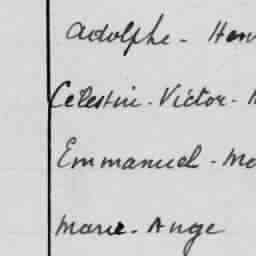 Adolphe - Hen
Celestin - Victor -
Emmanuel - Ma
Marie - Ange